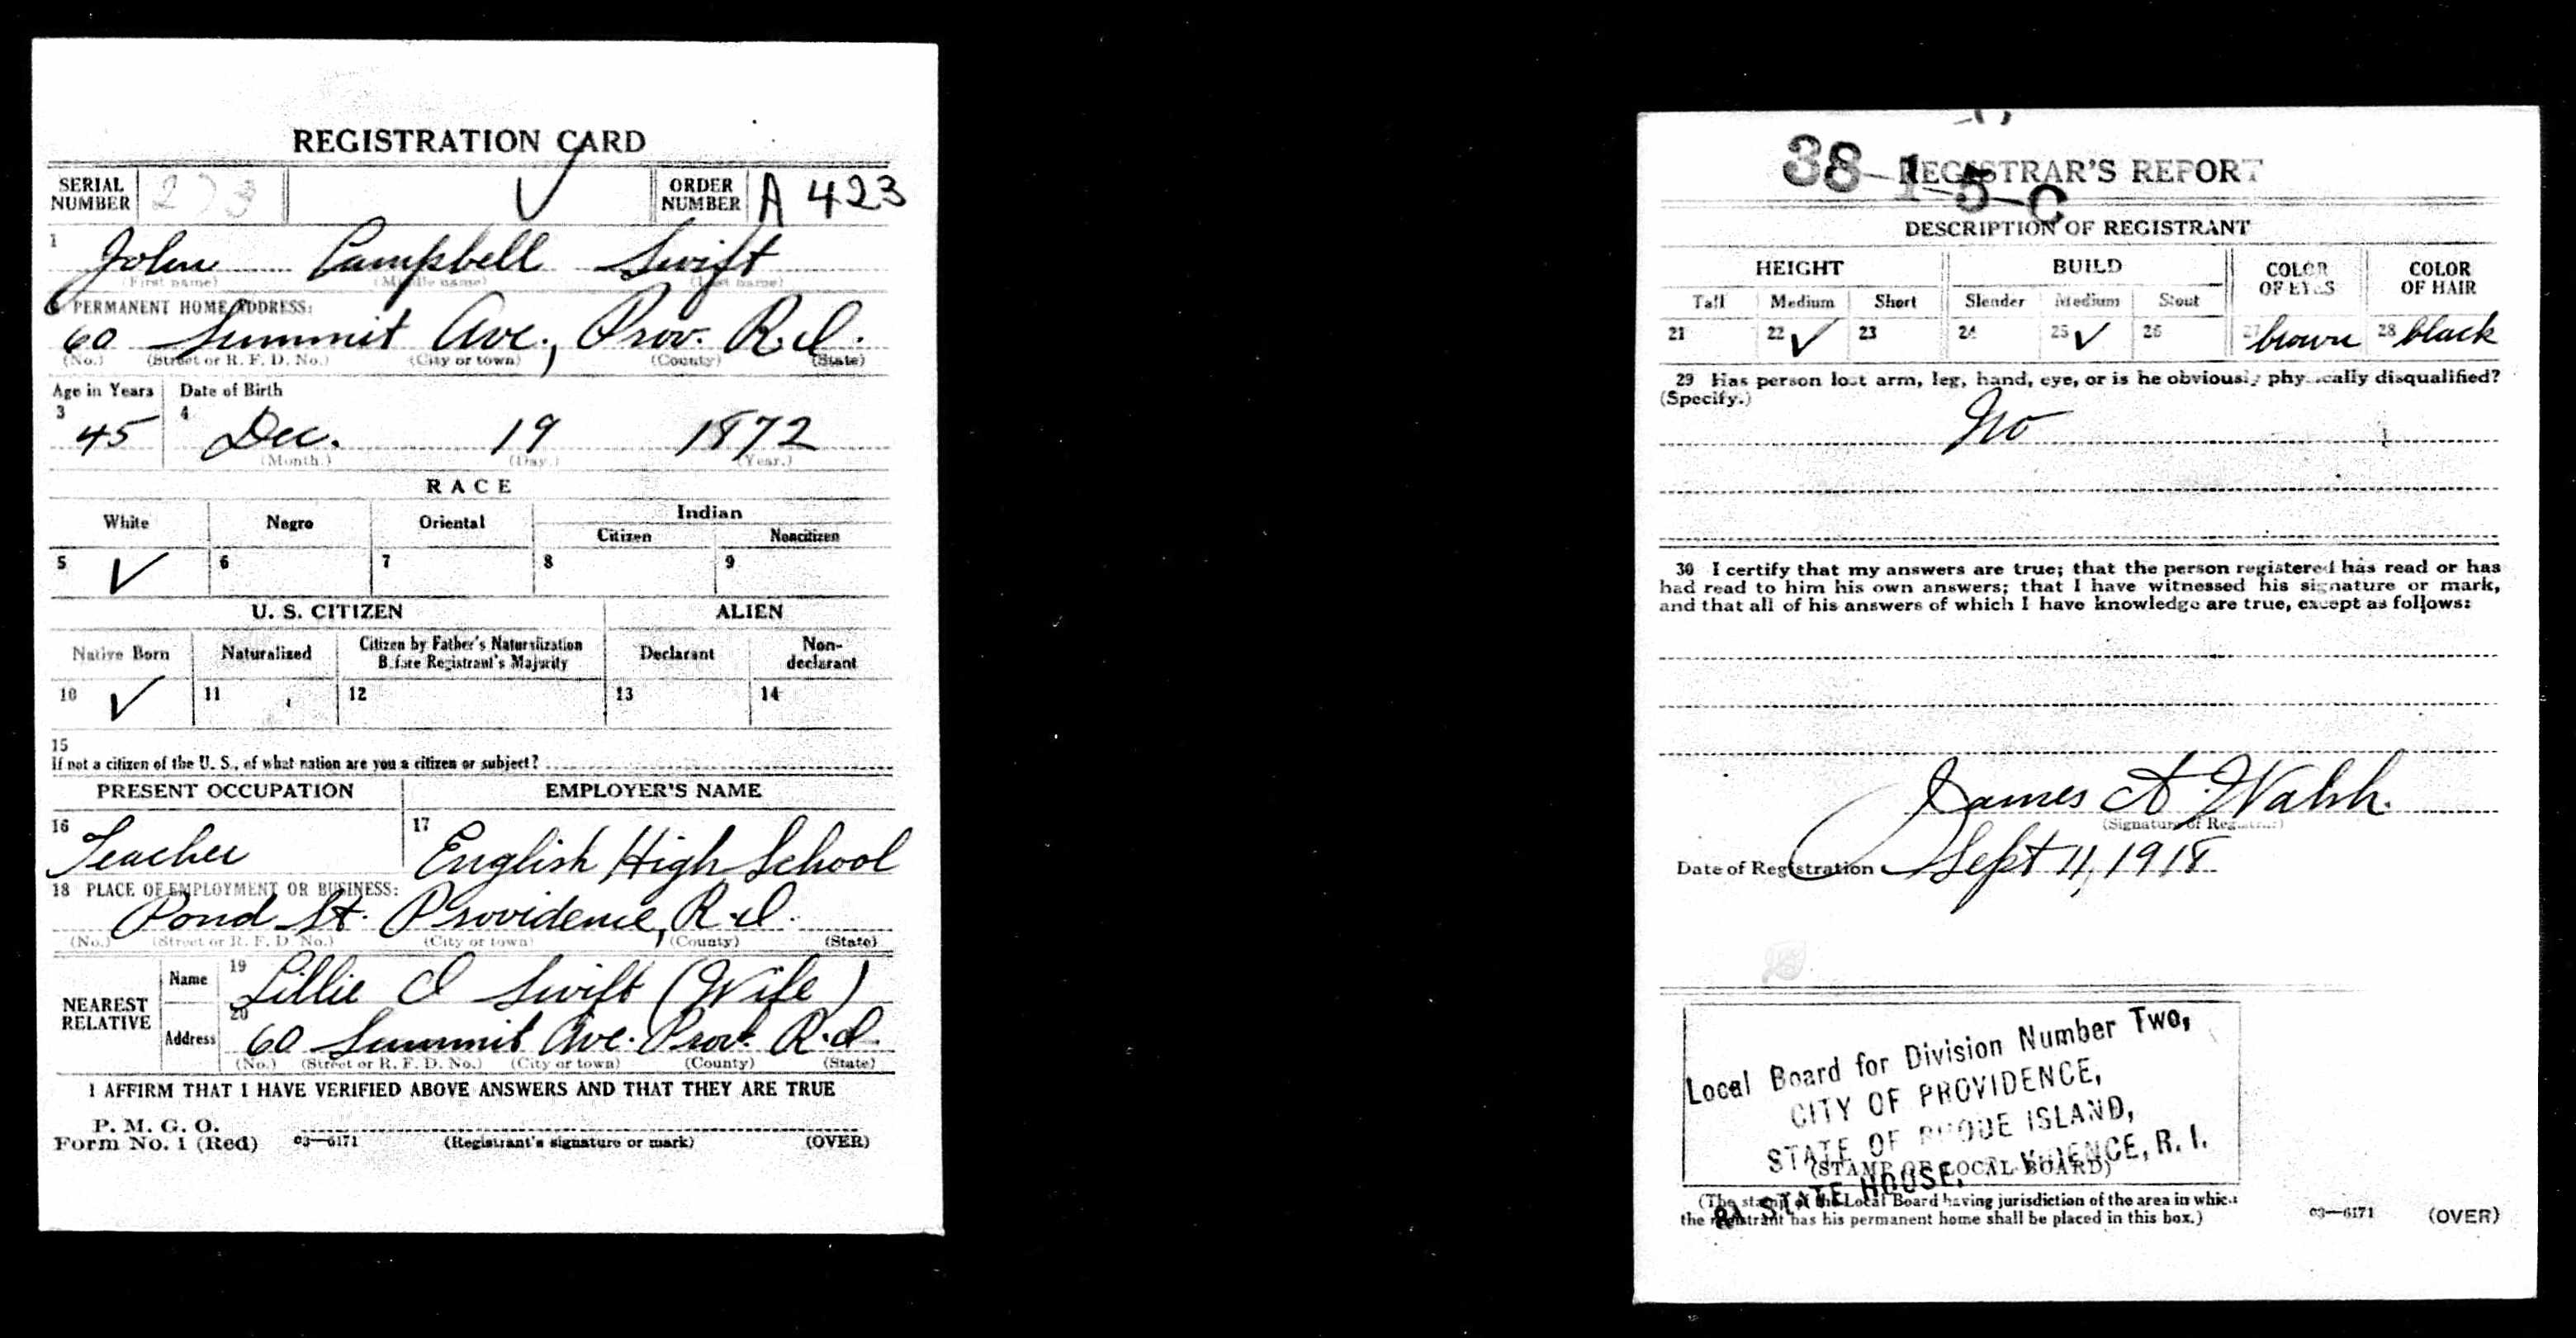 REGISTRATION CARD
SERIAL NUMBER 273 ORDER NUMBER A 423
1 John Campbell Swift
(First name) (Middle name) (Last name)
2 PERMANENT HOME ADDRESS:
60 Summit Ave., Prov. R.I.
(No.) (Street or R. F. D. No.) (City or town) (County) (State)
Age in Years Date of Birth
3 45 4 Dec. 19 1872
(Month.) (Day.) (Year.)
RACE
White Negro Oriental Indian
Citizen Noncitizen
5 ✓ 6 7 8 9
U. S. CITIZEN ALIEN
Native Born Naturalized Citizen by Father's Naturalization Before Registrant's Majority Declarant Non-declarant
10 ✓ 11 12 13 14
15
If not a citizen of the U. S., of what nation are you a citizen or subject?
PRESENT OCCUPATION EMPLOYER'S NAME
16 Teacher 17 English High School
18 PLACE OF EMPLOYMENT OR BUSINESS:
Pond St. Providence, R.I.
(No.) (Street or R. F. D. No.) (City or town) (County) (State)
NEAREST RELATIVE
Name 19 Lillie I Swift (Wife)
Address 20 60 Summit Ave. Prov. R.I.
(No.) (Street or R. F. D. No.) (City or town) (County) (State)
I AFFIRM THAT I HAVE VERIFIED ABOVE ANSWERS AND THAT THEY ARE TRUE
P. M. G. O.
Form No. 1 (Red) 03—6171 (Registrant's signature or mark) (OVER)
38-1-5-C
REGISTRAR'S REPORT
DESCRIPTION OF REGISTRANT
HEIGHT BUILD COLOR OF EYES COLOR OF HAIR
Tall Medium Short Slender Medium Stout
21 22 ✓ 23 24 25 ✓ 26 27 brown 28 black
29 Has person lost arm, leg, hand, eye, or is he obviously physically disqualified?
(Specify.)
No
30 I certify that my answers are true; that the person registered has read or has
had read to him his own answers; that I have witnessed his signature or mark,
and that all of his answers of which I have knowledge are true, except as follows:
James A. Walsh.
(Signature of Registrar)
Date of Registration Sept 11, 1918
Local Board for Division Number Two,
CITY OF PROVIDENCE,
STATE OF RHODE ISLAND,
STATE HOUSE, PROVIDENCE, R. I.
(STAMP OF LOCAL BOARD)
(The stamp of the Local Board having jurisdiction of the area in which
the registrant has his permanent home shall be placed in this box.)
03—6171 (OVER)